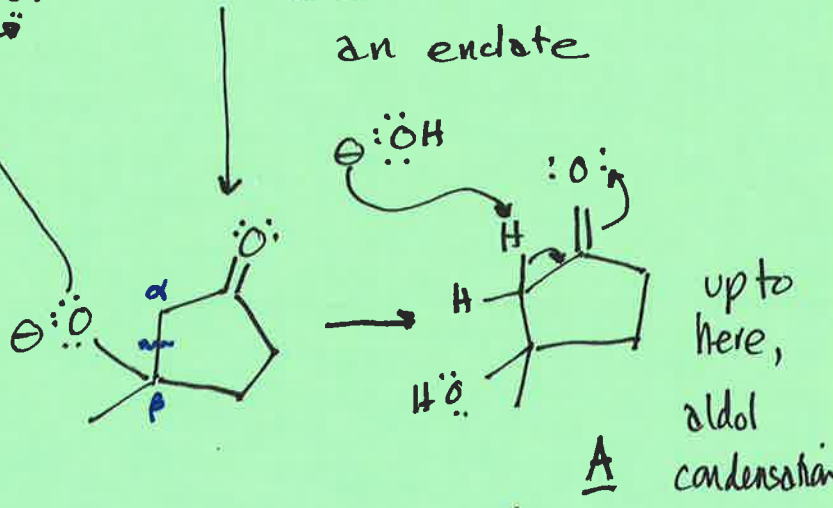 an enolate
⊖:ÖH
:O:
H
H
HÖ
Ö:
α
⊖:Ö
β
up to
here,
aldol
condensation
A